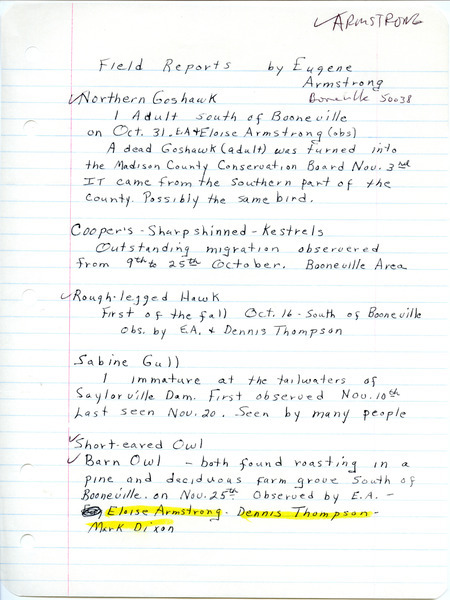 ✓ARMSTRONG
Field Reports by Eugene
Armstrong
Booneville 50038
✓Northern Goshawk
1 Adult south of Booneville
on Oct. 31. E.A & Eloise Armstrong (obs)
A dead Goshawk (adult) was turned into
the Madison County Conservation Board Nov. 3rd
IT came from the southern part of the
county. Possibly the same bird.
Cooper's - Sharpshinned - Kestrels
Outstanding migration observered
from 9th to 25th October. Booneville Area
✓Rough-legged Hawk
First of the fall Oct. 16 - South of Booneville
obs. by E.A. & Dennis Thompson
Sabine Gull
1 immature at the tailwaters of
Saylorville Dam. First observed Nov. 10th
Last seen Nov. 20. Seen by many people
✓Short-eared Owl
✓Barn Owl - both found roasting in a
pine and deciduous farm grove South of
Booneville. on Nov. 25th Observed by E.A. -
Eloise Armstrong. Dennis Thompson -
Mark Dixon